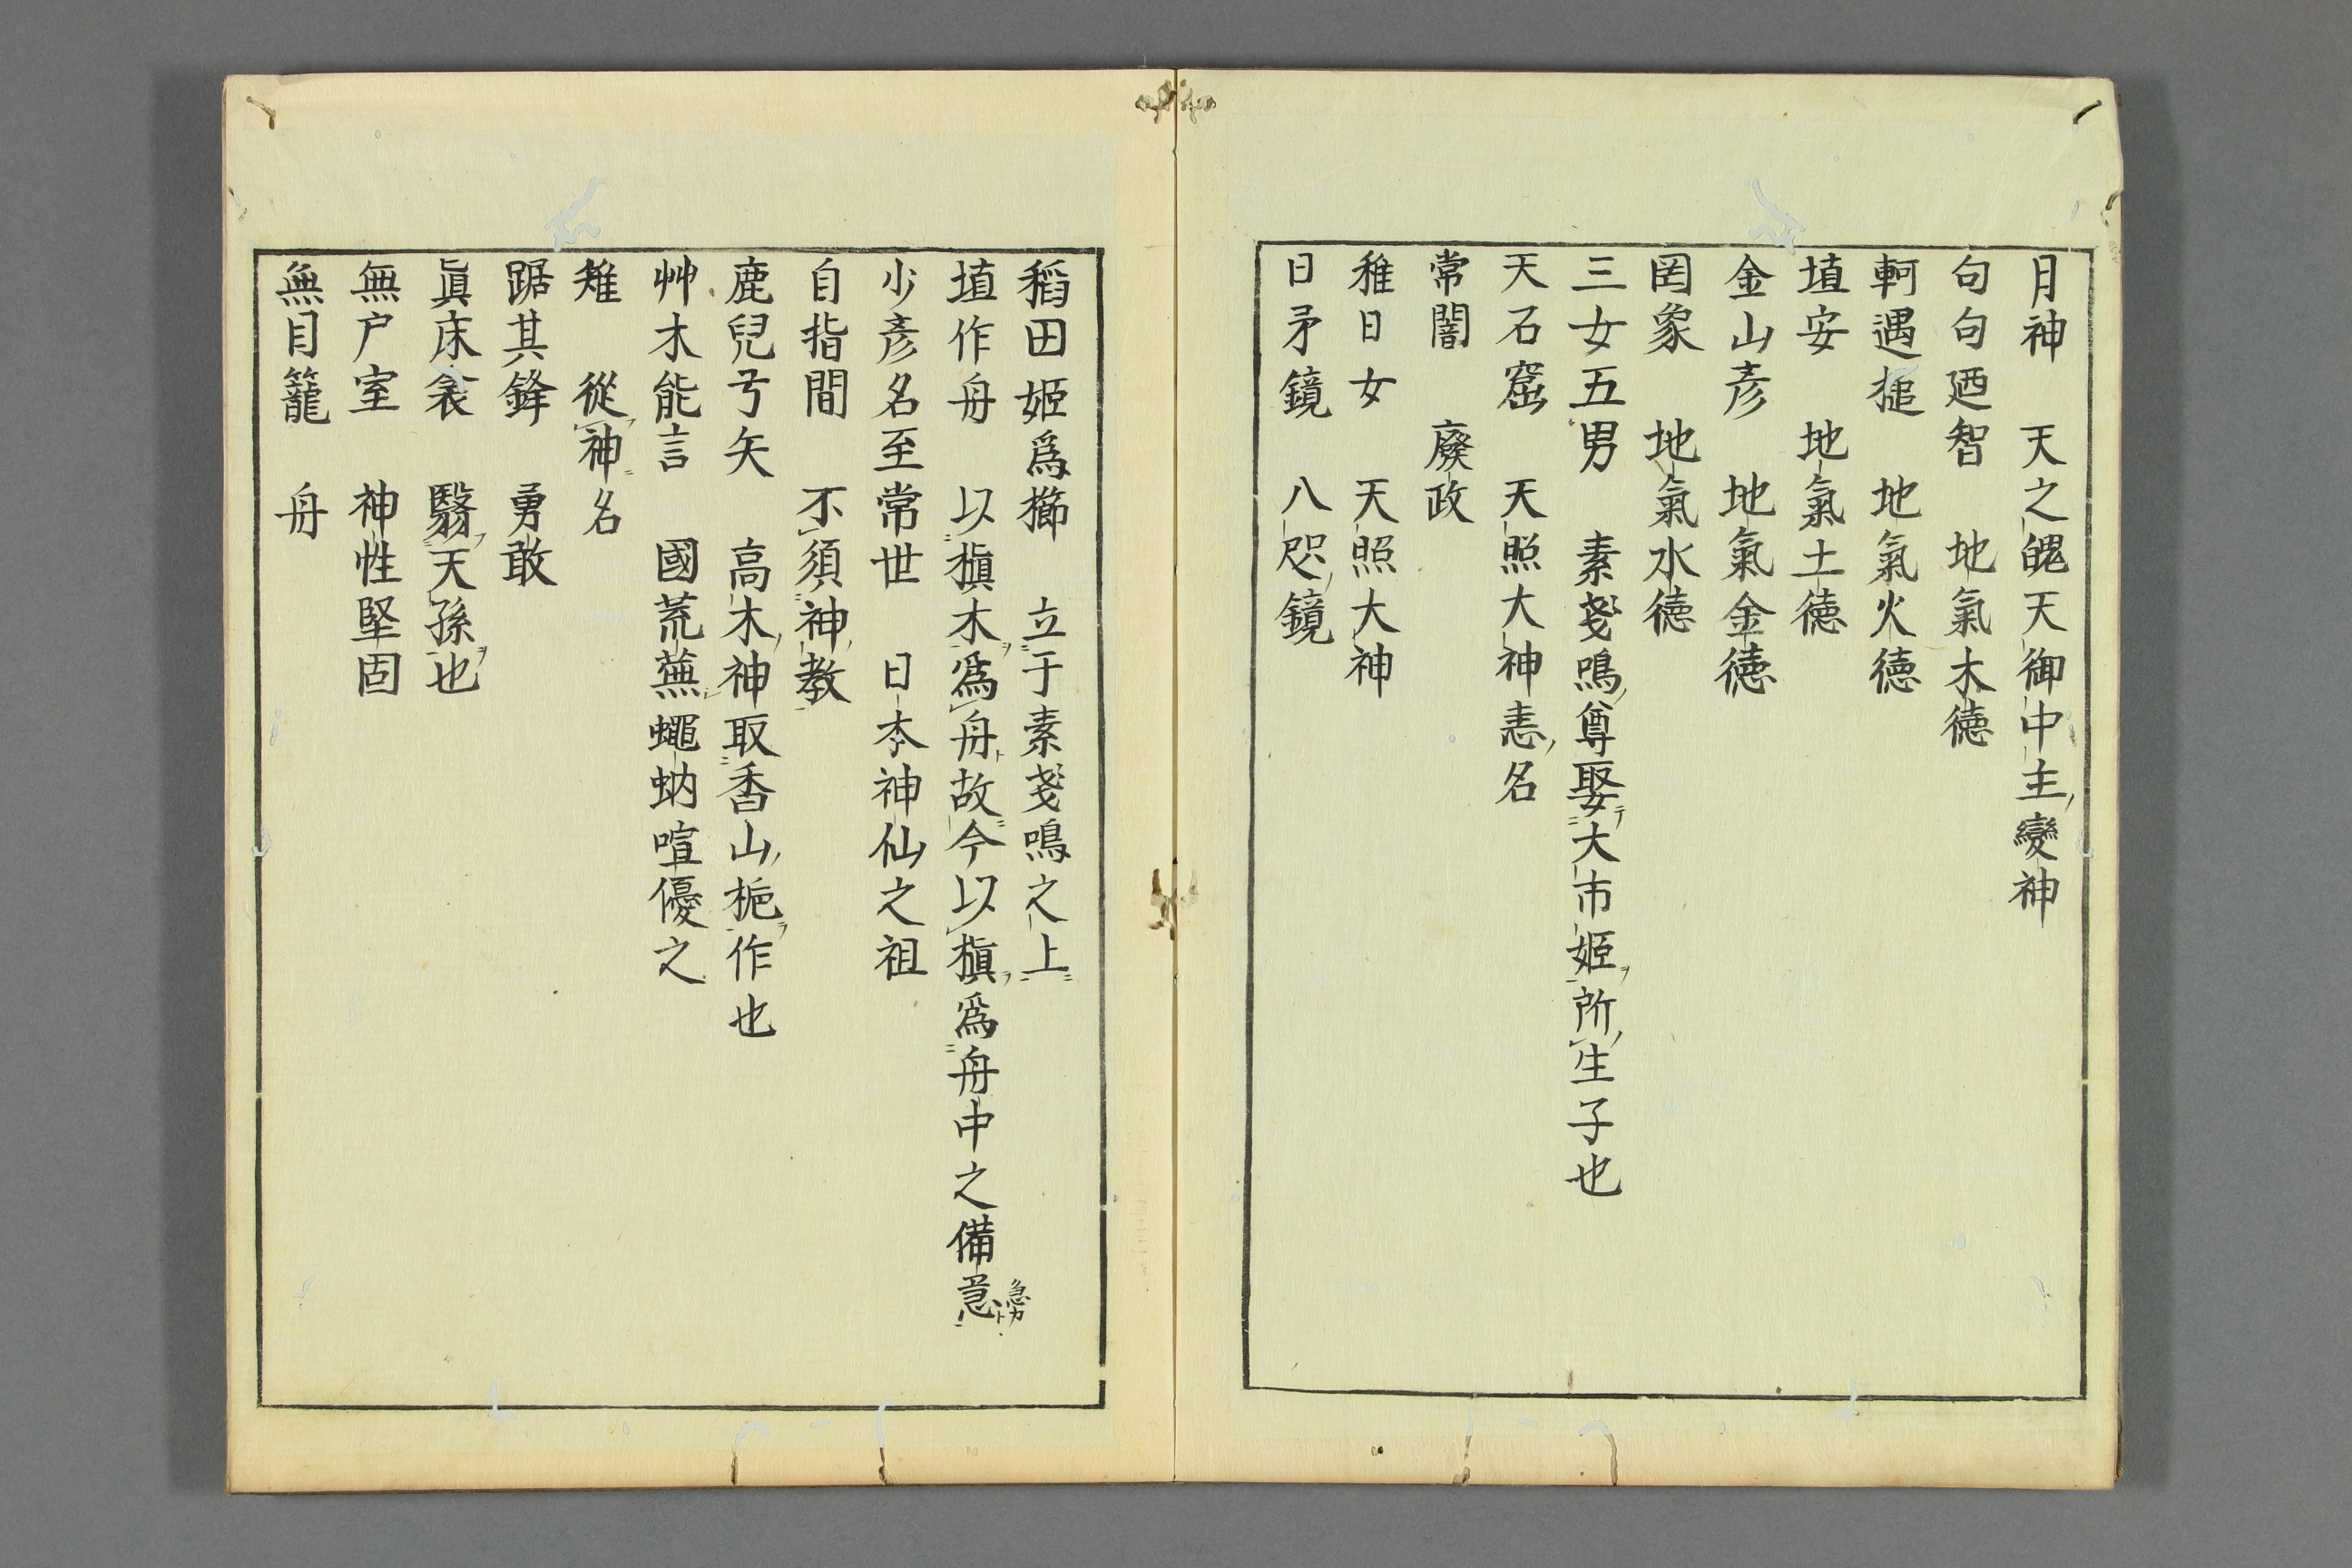 月神　天之魄天御中主ノ變神
句句廼智　地氣木德
軻遇槌　地氣火德
埴安　地氣土德
金山彥　地氣金德
罔象　地氣水德
三女五男　素戔嗚ノ尊娶テ大市姬ヲ所ノ生子也
天石窟　天照大神恚ノ名
常闇　廢政
稚日女　天照大神
日矛鏡　八咫ノ鏡
稻田姬爲櫛　立于素戔嗚之上ニ
埴作舟　以槙木ヲ爲舟ト故今以槙ヲ爲舟中之備急ト
急カ
少彥名至常世　日本神仙之祖
自指間　不須神ノ教
鹿兒弓矢　高木ノ神取香山ノ梔ヲ作也
艸木能言　國荒蕪蠅蚋喧優之
雉　從神名
踞其鋒　勇敢
眞床衾　翳ヲ天孫ヲ也
無户室　神性堅固
無目籠　舟